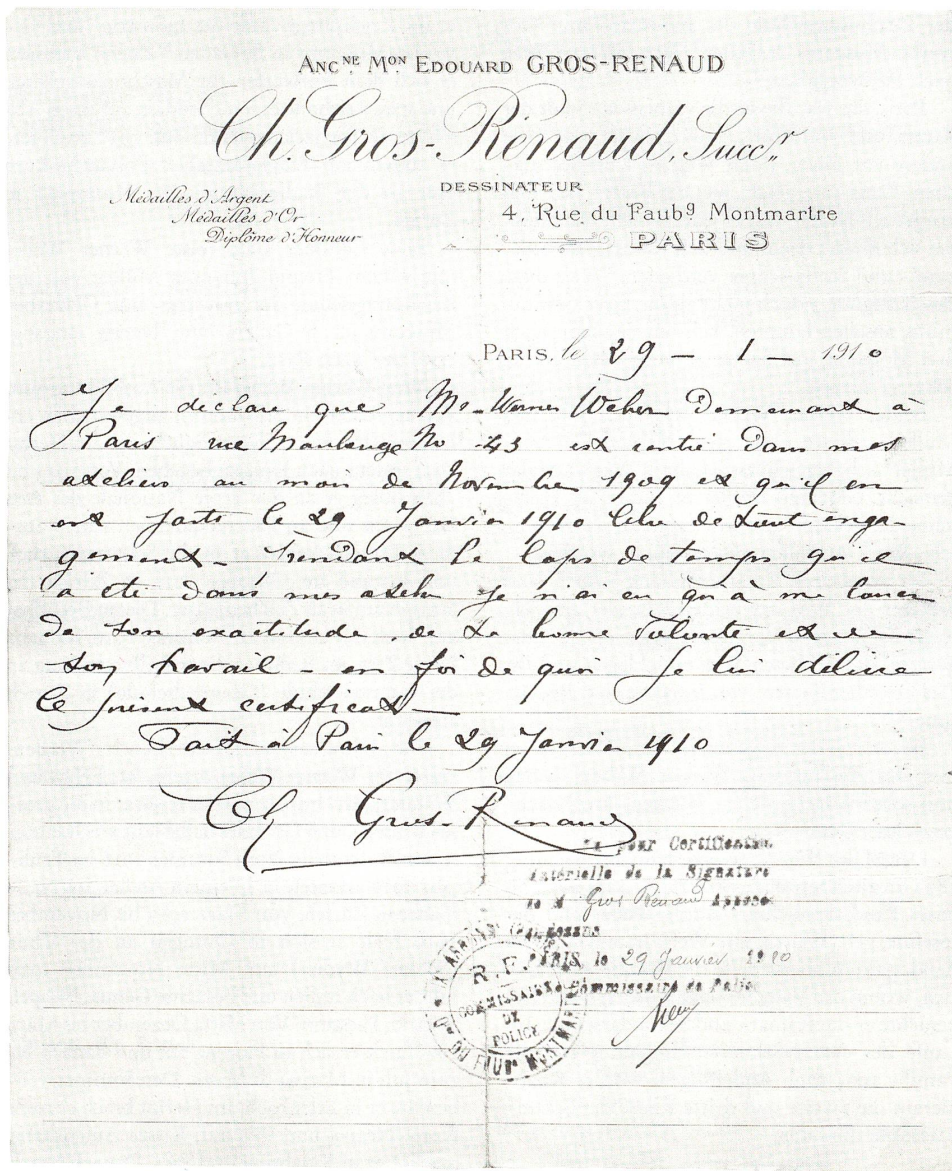 ANCNE MON EDOUARD GROS-RENAUD
Ch. Gros-Renaud, Succr
DESSINATEUR
Médailles d'Argent
Médailles d'Or
Diplôme d'Honneur
4, Rue du Faubg Montmartre
PARIS
PARIS, le 29 – 1 – 1910
Je déclare que Mr Werner Weber Demeurant à
Paris rue Maubeuge No 43 est rentré Dans mes
ateliers au mois de Novembre 1909 et qu'il en
est parti le 29 Janvier 1910 libre de tout enga-
gement – Pendant le laps de temps qu'il
a été Dans mes atelier je n'ai eu qu'à me louer
de son exactitude, de sa bonne Volonté et de
son travail – en foi de quoi je lui délivre
le présent certificat –
Fait à Paris le 29 Janvier 1910
Ch Gros-Renaud
pour Certification
matérielle de la Signature
de M Gros Renaud Apposée
Ci-dessus
PARIS, le 29 Janvier 1910
Commissaire de Police
R.F.
COMMISSAIRE
DE
POLICE
DU FAUBG MONTMARTRE